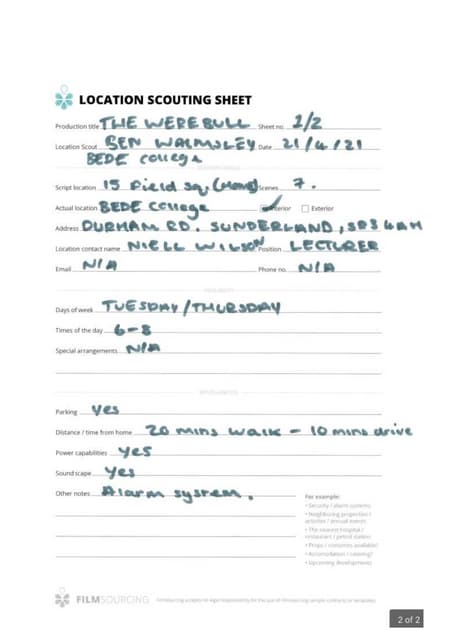 LOCATION SCOUTING SHEET
Production title THE WEREBULL Sheet no 1/2
Location Scout BEN WALMSLEY Date 21/4/21
BEDE college
Script location 15 Field Sq. (Home) Scenes 7.
Actual location BEDE College Interior Exterior
Address DURHAM RD. SUNDERLAND, SR3 4AH
Location contact name NIELL WILSON Position LECTURER
Email N/A Phone no. N/A
Days of week TUESDAY/THURSDAY
Times of the day 6-8
Special arrangements N/A
Parking Yes
Distance / time from home 20 mins walk - 10 mins drive
Power capabilities Yes
Sound scape Yes
Other notes Alarm system.
For example:
• Security / alarm systems
• Neighboring properties /
activities / annual events
• The nearest hospital /
restaurant / petrol station
• Props / costumes available?
• Accomodation / catering?
• Upcoming developments
FILMSOURCING
2 of 2